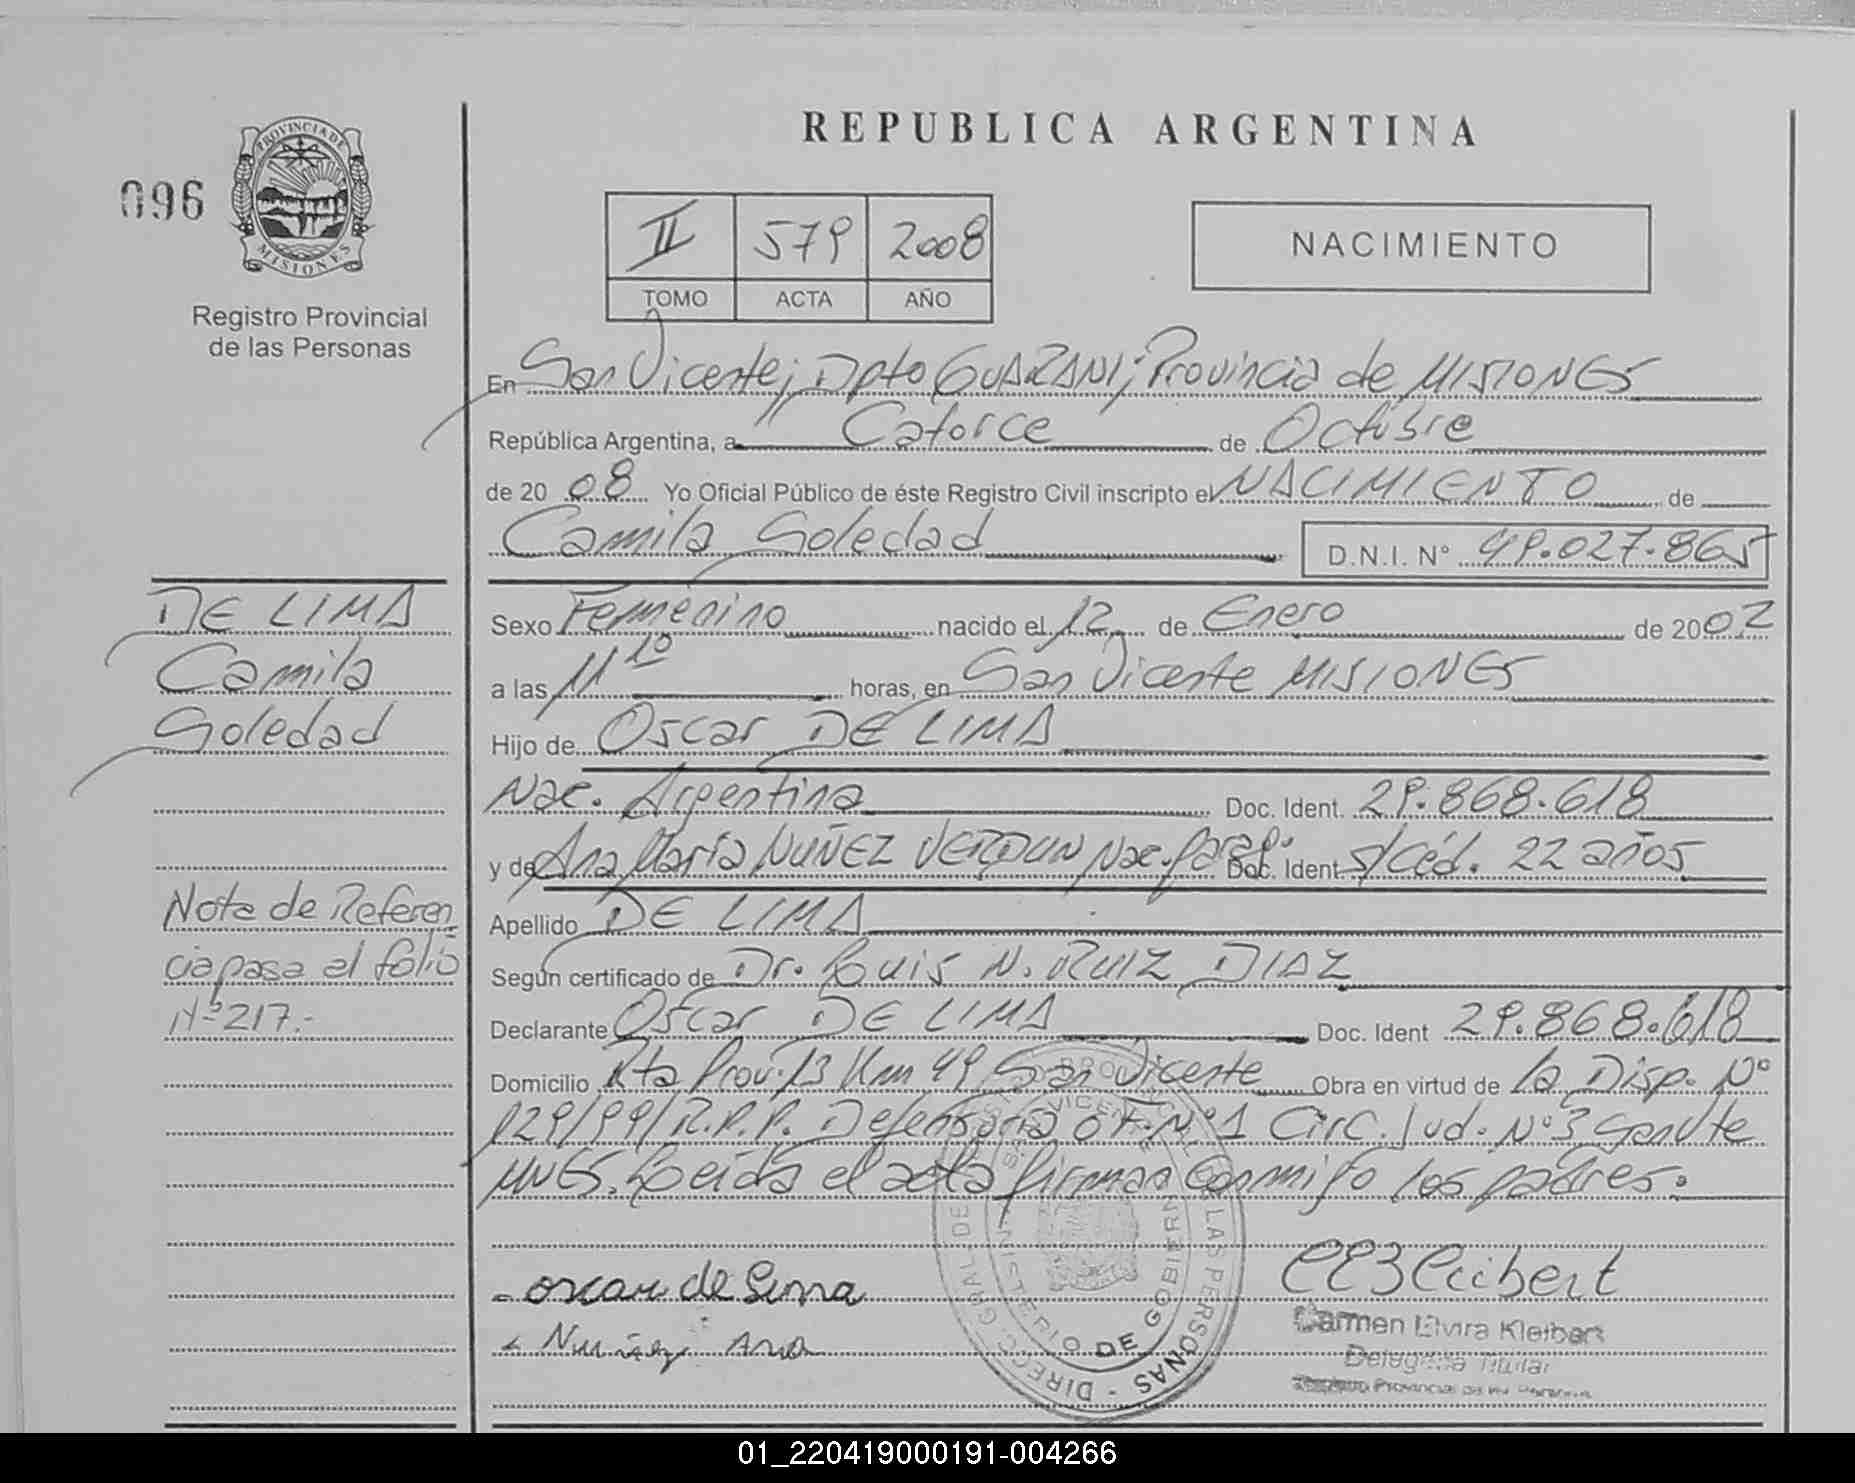 REPUBLICA ARGENTINA
096
PROVINCIA DE
MISIONES
Registro Provincial
de las Personas
II 579 2008
TOMO ACTA AÑO
NACIMIENTO
En San Vicente, Dpto GUARANI, Provincia de MISIONES
República Argentina, a Catorce de Octubre
de 20 08 Yo Oficial Público de éste Registro Civil inscripto el NACIMIENTO de
Camila Soledad D.N.I. N° 49.027.865
DE LIMA
Camila
Soledad
Sexo Femenino nacido el 12 de Enero de 2002
a las 11 10 horas, en San Vicente MISIONES
Hijo de Oscar DE LIMA
Nac. Argentina Doc. Ident. 29.868.618
y de Ana María NUÑEZ VERDUN Nac. parag. Doc. Ident s/Céd. 22 años
Apellido DE LIMA
Según certificado de Dr. Luis N. RUIZ DIAZ
Declarante Oscar DE LIMA Doc. Ident 29.868.618
Domicilio Rta Prov. 13 Km 49 San Vicente Obra en virtud de la Disp. N°
029/99/R.P.P. Defensoria Of. N°1 Circ. Jud. N°3 San Vte
MNES. Leída el acta firman conmigo los padres.
Nota de Referen
cia pasa al folio
N° 217.-
oscar de Lima
Nuñez Ana
Carmen Elvira Kleibert
Delegada Titular
Registro Provincial de las Personas
DIRECC. GRAL. DE PROVINCIAL DE LAS PERSONAS
MINISTERIO DE GOBIERNO
SAN VICENTE
01_220419000191-004266